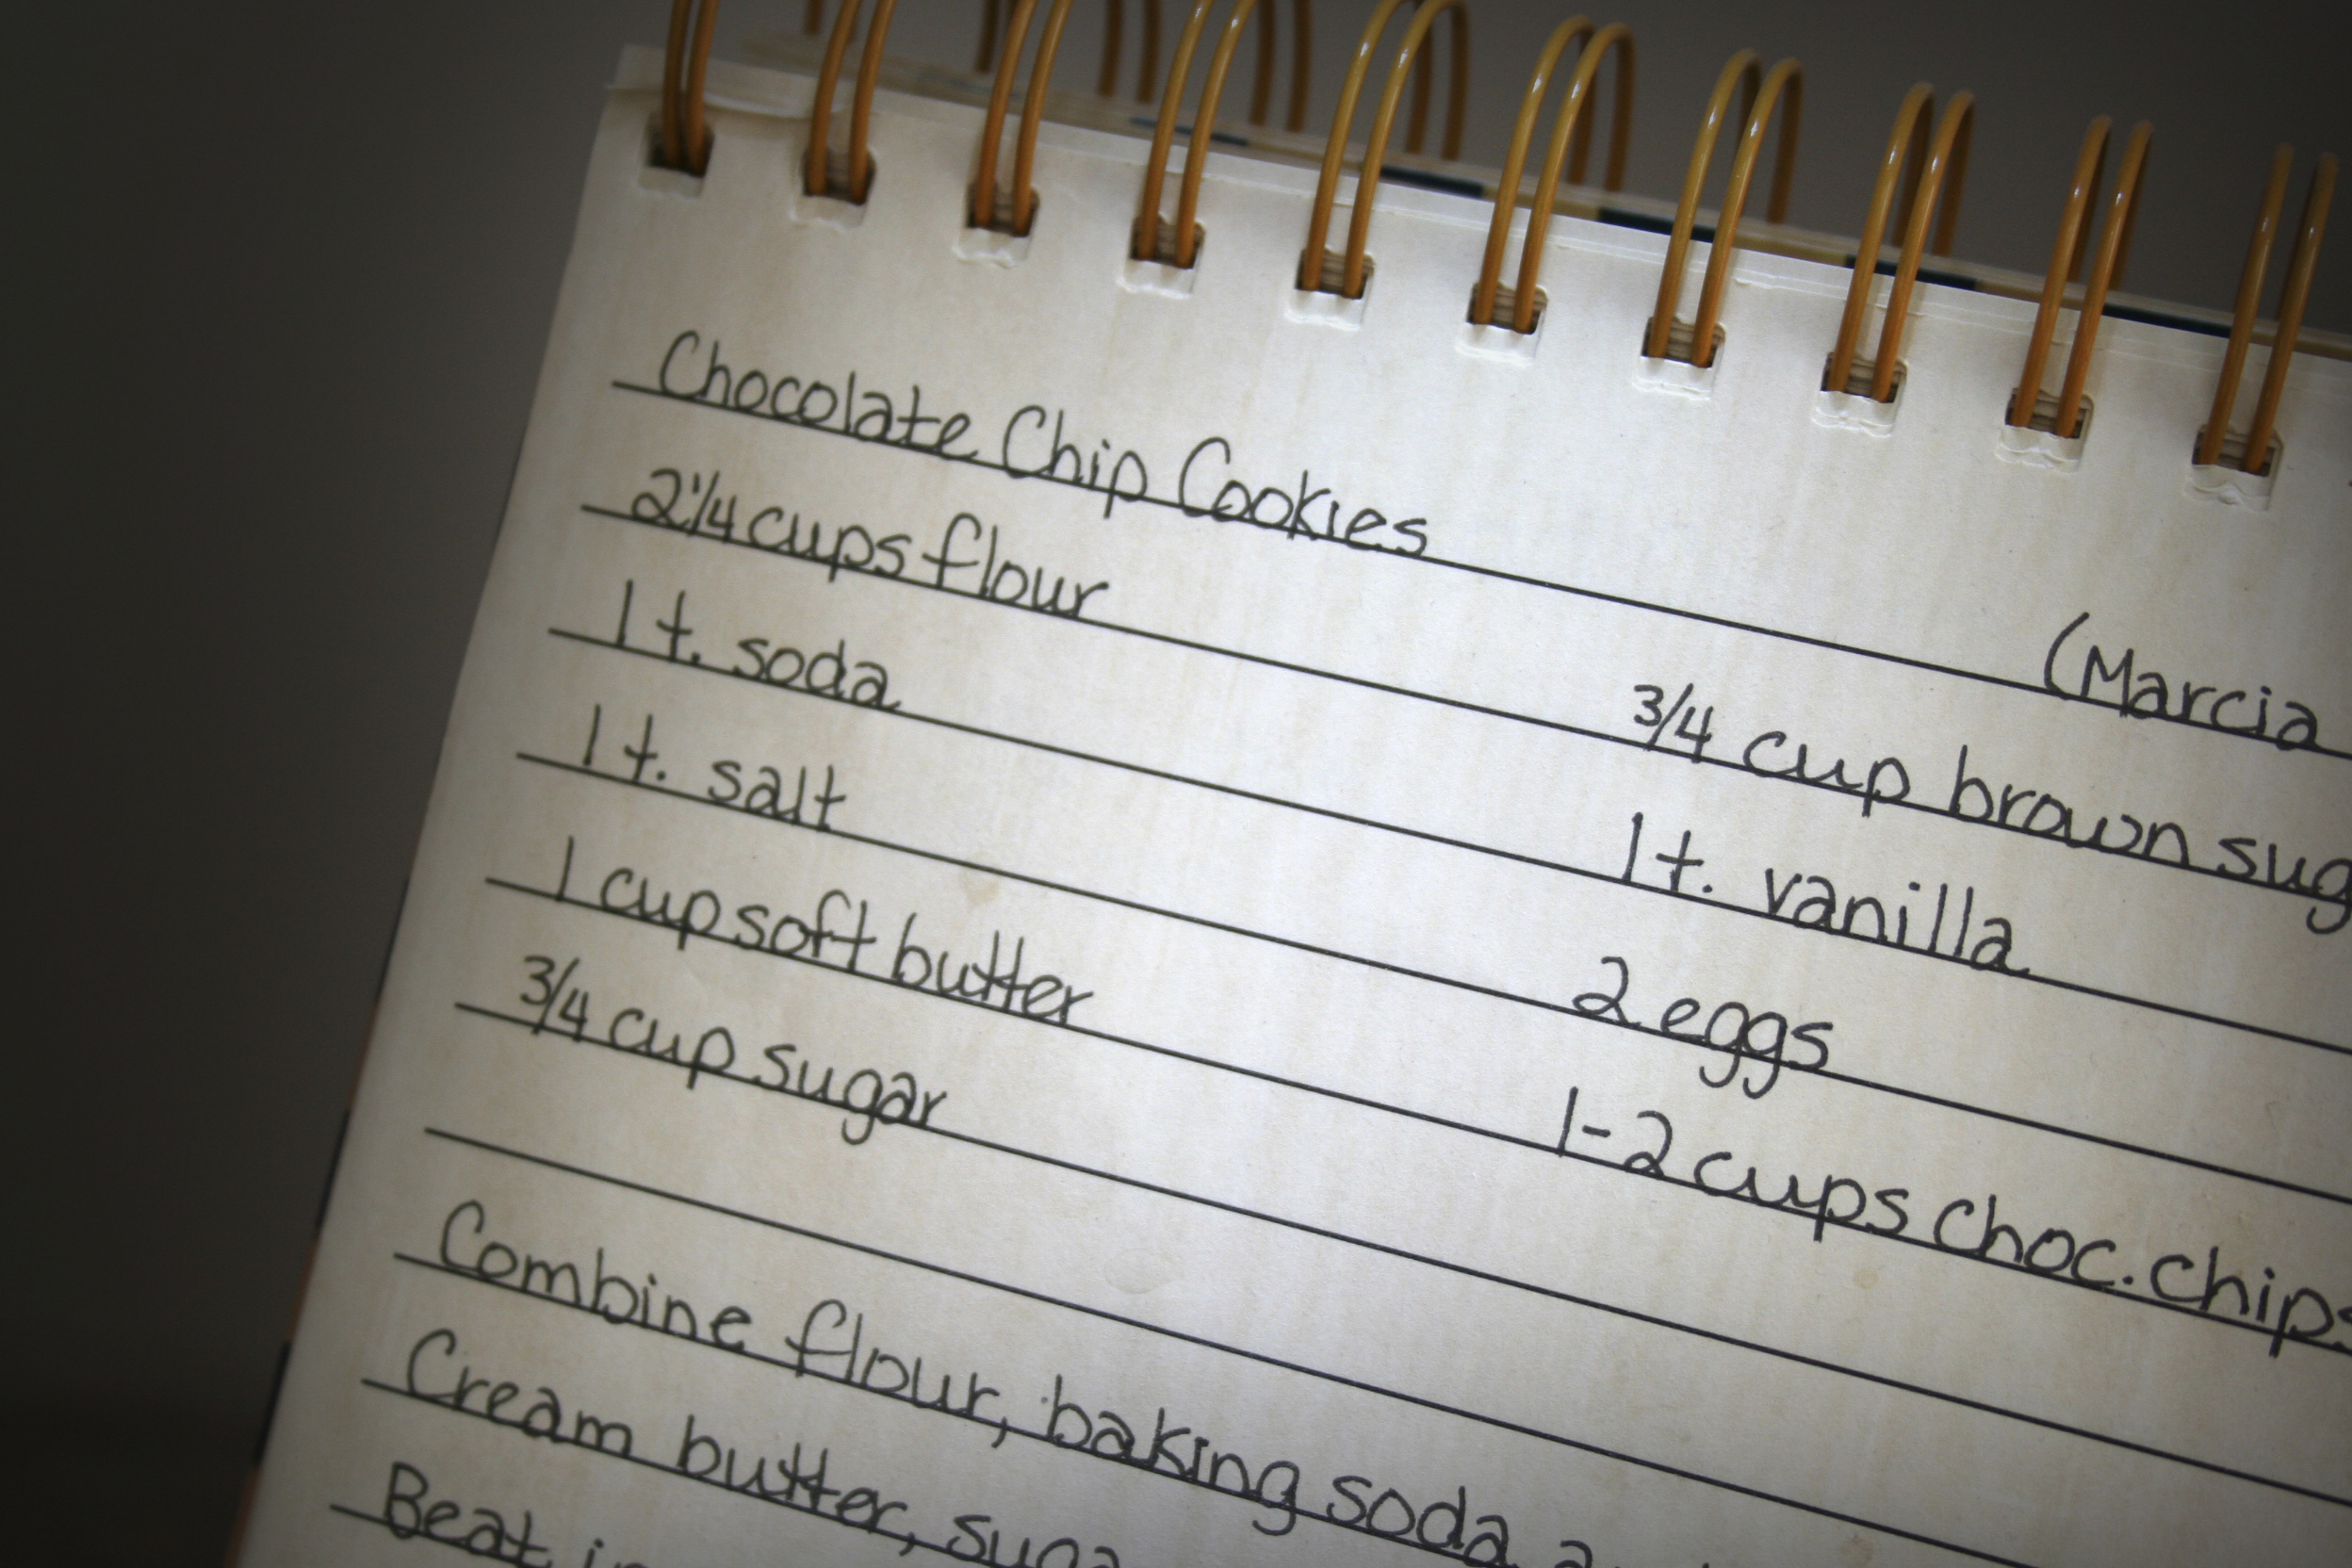 Chocolate Chip Cookies
(Marcia
2 1/4 cups flour
3/4 cup brown sug
1 t. soda
1 t. vanilla
1 t. salt
2 eggs
1 cup soft butter
1-2 cups choc. chips
3/4 cup sugar
Combine flour, baking soda
Cream butter, suga
Beat in